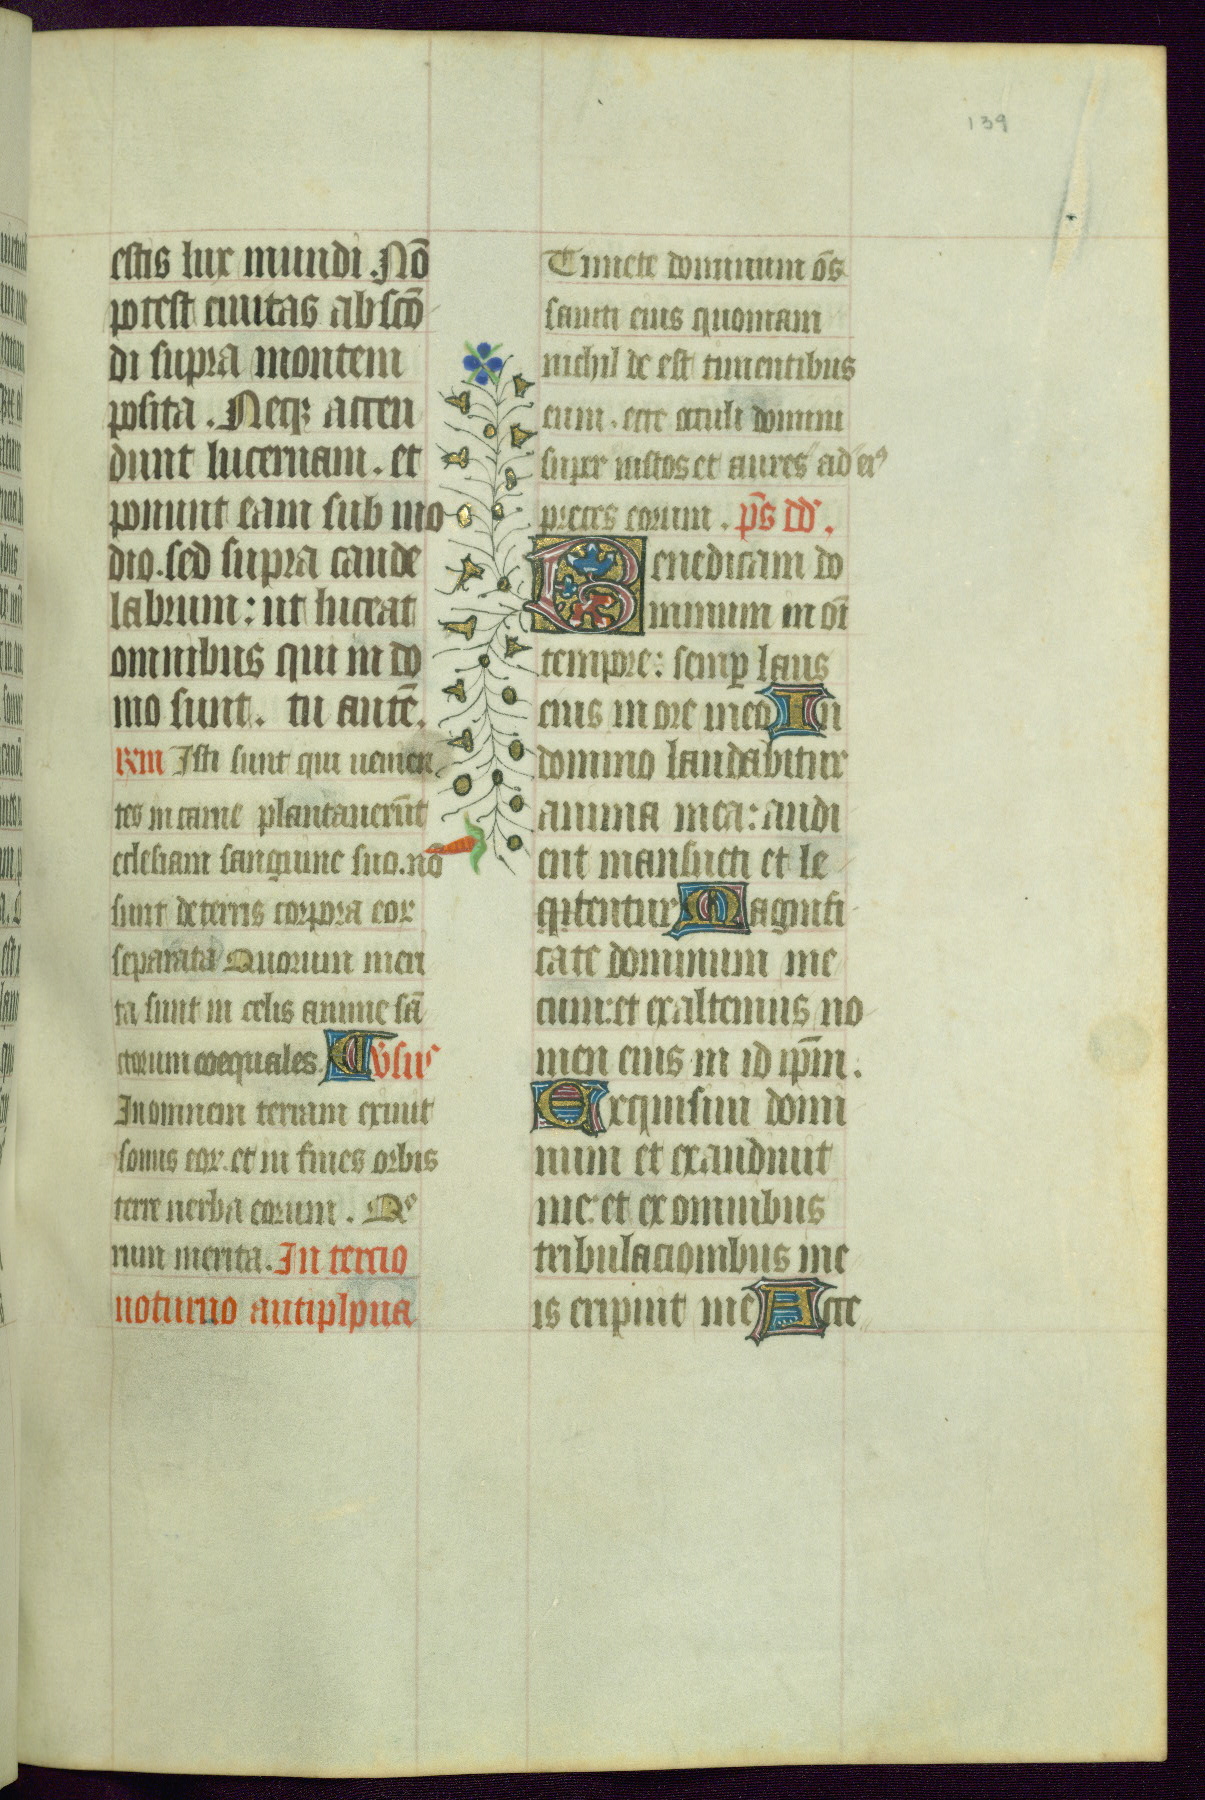 139
estis lux mundi. Nō
potest ciuitas abscō
di supra montem
posita. Neqȝ accen
dunt lucernam. et
ponunt eam sub mo
dio. sed supra cande
labrum: ut luceat
omnibus qui in do
mo sunt. tu autē.
Rm̄ Isti sunt qui uiuen
tes in carne plantauerūt
eclesiam sanguine suo. nō
sunt de terris corpora eoꝝ
separata Quorum meri
ta sunt in celis anime sā
ctorum coequales. Ꝟsus
In omnem terram exiuit
sonus eoꝝ. et in fines orbis
terre uerba eorum. Quo
rum merita. In tercio
noturno antiphona
Timete dominum ōs
sancti eius quoniam
nichil de est timentibus
eum. ecce oculi domini
super iustos et aures ad ei9
preces eorum. p̄s dd̄.
Benedicam do
minum in oī
tempore: semꝑ laus
eius in ore meo In
domino laudabitur
anima mea: audi
ent mansueti et le
tentur Magnifi
cate dominum me
cum: et exaltemus no
men eius in id ip̄m.
Exquisiui domi
num et exaudiuit
me: et ex omnibus
tribulacionibus me
is eripuit me Acce